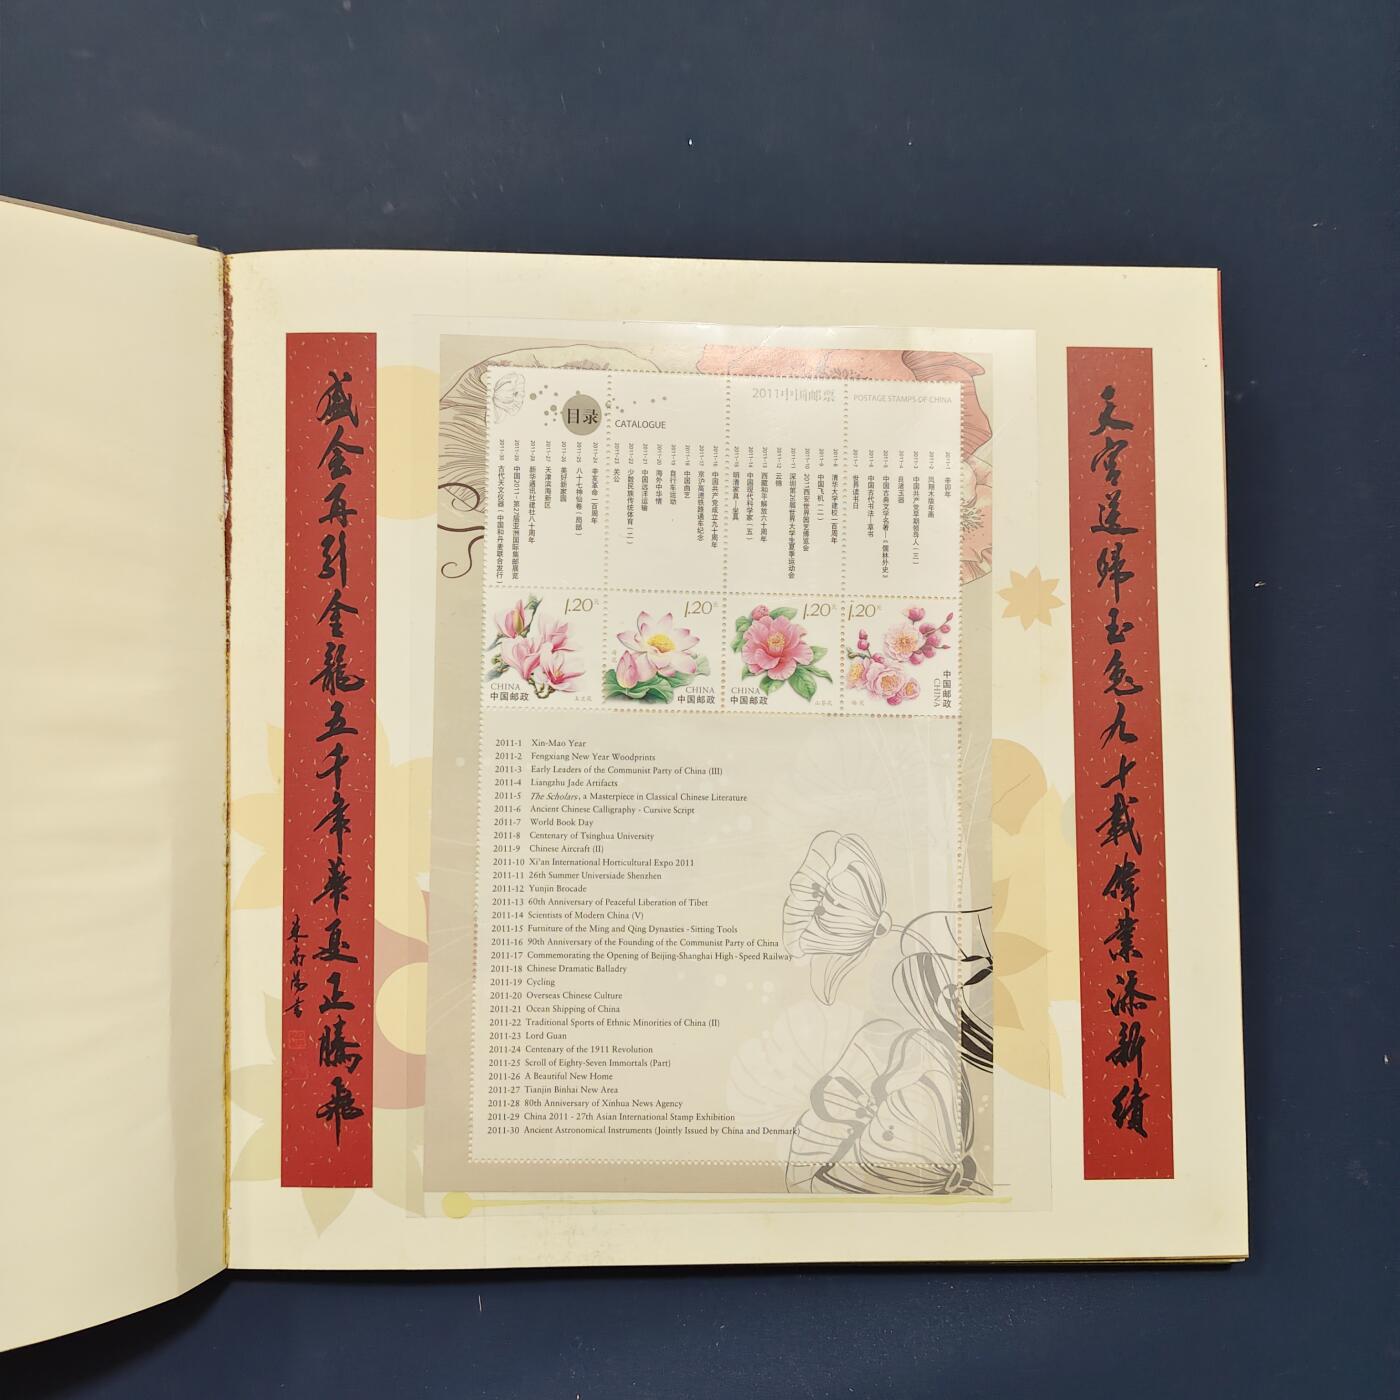 天宫送歸玉兔九十載偉業添新績
盛会再引金龍五千年華夏正騰飛
目录
CATALOGUE
2011中国邮票
POSTAGE STAMPS OF CHINA
2011-1 辛卯年
2011-2 凤翔木版年画
2011-3 中国共产党早期领导人（三）
2011-4 良渚玉器
2011-5 中国古典文学名著—《儒林外史》
2011-6 中国古代书法—草书
2011-7 世界读书日
2011-8 清华大学建校一百周年
2011-9 中国飞机（二）
2011-10 2011西安世界园艺博览会
2011-11 深圳第26届世界大学生夏季运动会
2011-12 云锦
2011-13 西藏和平解放六十周年
2011-14 中国现代科学家（五）
2011-15 明清家具—坐具
2011-16 中国共产党成立九十周年
2011-17 京沪高速铁路通车纪念
2011-18 中国曲艺
2011-19 自行车运动
2011-20 海外中华情
2011-21 中国远洋运输
2011-22 少数民族传统体育（二）
2011-23 关公
2011-24 辛亥革命一百周年
2011-25 八十七神仙卷（局部）
2011-26 美好新家园
2011-27 天津滨海新区
2011-28 新华通讯社建社八十周年
2011-29 中国2011－第27届亚洲国际集邮展览
2011-30 古代天文仪器（中国和丹麦联合发行）
1.20元
CHINA
中国邮政
玉兰花
1.20元
CHINA
中国邮政
1.20元
CHINA
中国邮政
山茶花
1.20元
中国邮政
CHINA
梅花
2011-1 Xin-Mao Year
2011-2 Fengxiang New Year Woodprints
2011-3 Early Leaders of the Communist Party of China (III)
2011-4 Liangzhu Jade Artifacts
2011-5 The Scholars, a Masterpiece in Classical Chinese Literature
2011-6 Ancient Chinese Calligraphy - Cursive Script
2011-7 World Book Day
2011-8 Centenary of Tsinghua University
2011-9 Chinese Aircraft (II)
2011-10 Xi'an International Horticultural Expo 2011
2011-11 26th Summer Universiade Shenzhen
2011-12 Yunjin Brocade
2011-13 60th Anniversary of Peaceful Liberation of Tibet
2011-14 Scientists of Modern China (V)
2011-15 Furniture of the Ming and Qing Dynasties - Sitting Tools
2011-16 90th Anniversary of the Founding of the Communist Party of China
2011-17 Commemorating the Opening of Beijing-Shanghai High-Speed Railway
2011-18 Chinese Dramatic Balladry
2011-19 Cycling
2011-20 Overseas Chinese Culture
2011-21 Ocean Shipping of China
2011-22 Traditional Sports of Ethnic Minorities of China (II)
2011-23 Lord Guan
2011-24 Centenary of the 1911 Revolution
2011-25 Scroll of Eighty-Seven Immortals (Part)
2011-26 A Beautiful New Home
2011-27 Tianjin Binhai New Area
2011-28 80th Anniversary of Xinhua News Agency
2011-29 China 2011 - 27th Asian International Stamp Exhibition
2011-30 Ancient Astronomical Instruments (Jointly Issued by China and Denmark)